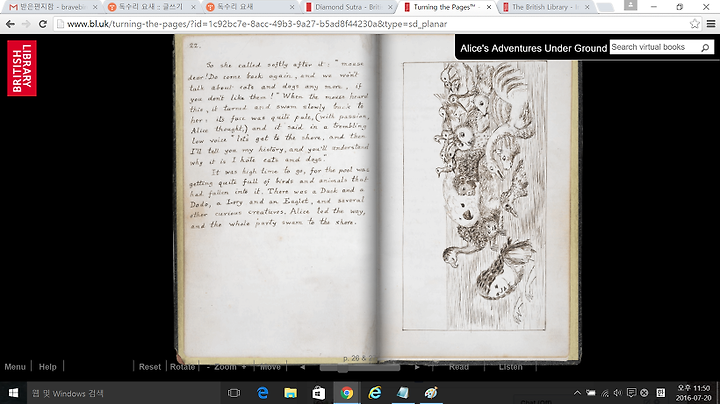 받은편지함 - bravebi
독수리 요새 :: 글쓰기
독수리 요새
Diamond Sutra - Briti
Turning the Pages™
The British Library - I
www.bl.uk/turning-the-pages/?id=1c92bc7e-8acc-49b3-9a27-b5ad8f44230a&type=sd_planar
BRITISH LIBRARY
Alice's Adventures Under Ground
Search virtual books
22.
So she called softly after it: "mouse
dear! Do come back again, and we won't
talk about cats and dogs any more, if
you don't like them!" When the mouse heard
this, it turned and swam slowly back to
her: its face was quite pale, (with passion,
Alice thought,) and it said in a trembling
low voice "let's get to the shore, and then
I'll tell you my history, and you'll understand
why it is I hate cats and dogs."
It was high time to go, for the pool was
getting quite full of birds and animals that
had fallen into it. There was a Duck and a
Dodo, a Lory and an Eaglet, and several
other curious creatures. Alice led the way,
and the whole party swam to the shore.
p. 26 &
Menu
Help
Reset
Rotate
- Zoom +
Move
Read
Listen
웹 및 Windows 검색
오후 11:50
2016-07-20